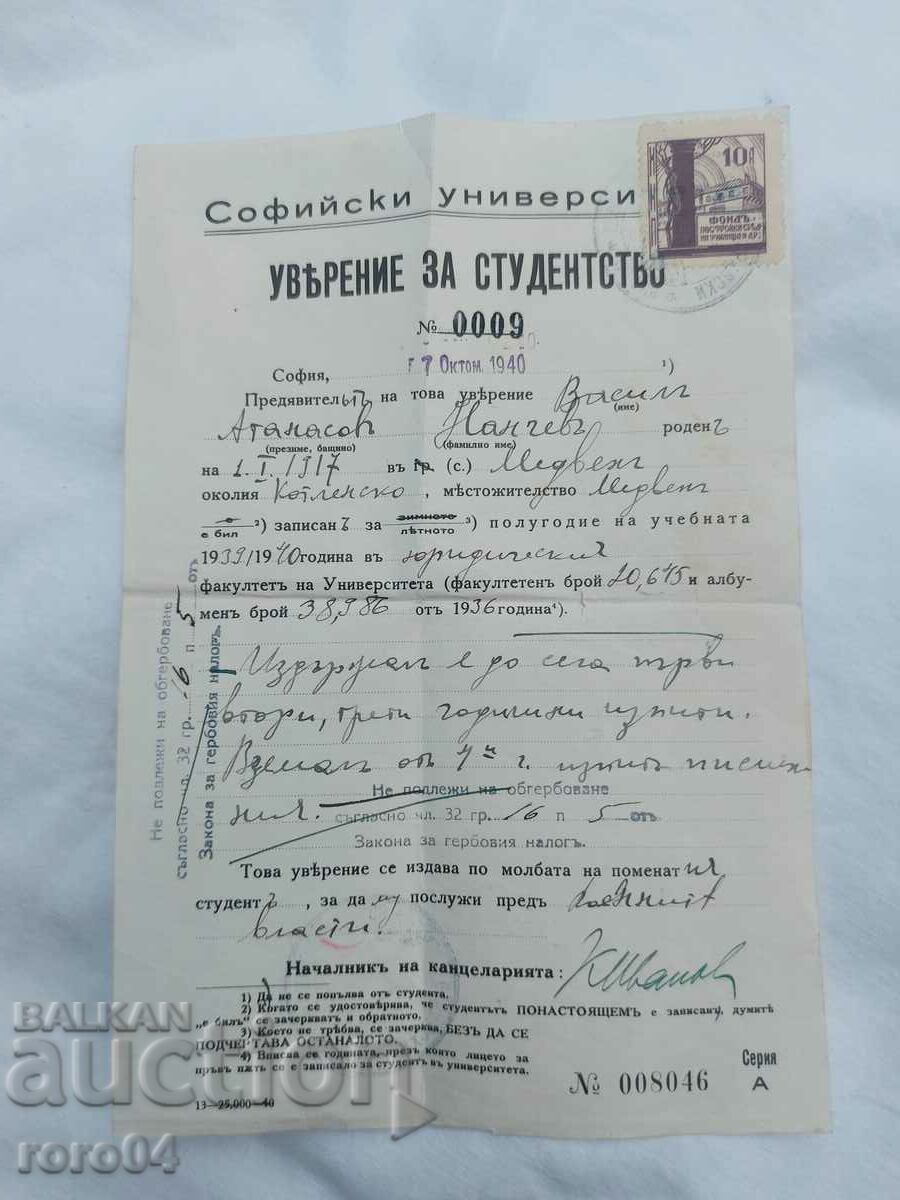 Софийски Универси
10
ФОНДЪ
ПОСТРОЙКИ СГРАДИ
УВѢРЕНИЕ ЗА СТУДЕНТСТВО
№ 0009
София, 7 Октом. 1940 ¹)
Предявительтъ на това уверение Василъ
(име)
Атанасовъ Нанчевъ роденъ
(презиме, бащино) (фамилно име)
на 1.I.1917 въ гр. (с.) Медвенъ
околия Котленско, мѣстожителство Медвенъ
е
е бил ²) записанъ за зимното
лѣтното ³) полугодие на учебната
1939/1940 година въ юридическия
факултетъ на Университета (факултетенъ брой 20,645 и албу-
менъ брой 38,986 отъ 1936 година⁴).
Издържал е до сега първи
втори, трети годишни изпити.
Вземал от 4ия г. изпит
Не подлежи на обгербоване
съгласно чл. 32 гр. 16 п 5 отъ
Закона за гербовия налогъ.
Не подлежи на обгербоване
съгласно чл. 32 гр. 16 п 5 отъ
Закона за гербовия налогъ.
Това уверение се издава по молбата на поменатия
студентъ, за да му послужи предъ военнитѣ
власти.
Началникъ на канцеларията: К Иванов
1) Да не се попълва отъ студента.
2) Когато се удостоверява, че студентътъ ПОНАСТОЯЩЕМЪ е записанъ, думитѣ
„е билъ“ се зачеркватъ и обратното.
3) Което не трѣбва, се зачерква, БЕЗЪ ДА СЕ
ПОДЧЕРТАВА ОСТАНАЛОТО.
4) Вписва се годината, презъ която лицето за
пръвъ пѫть се е записало за студентъ въ университета.
13—25,000—40
№ 008046
Серия
А
BALKAN
auction
roro04